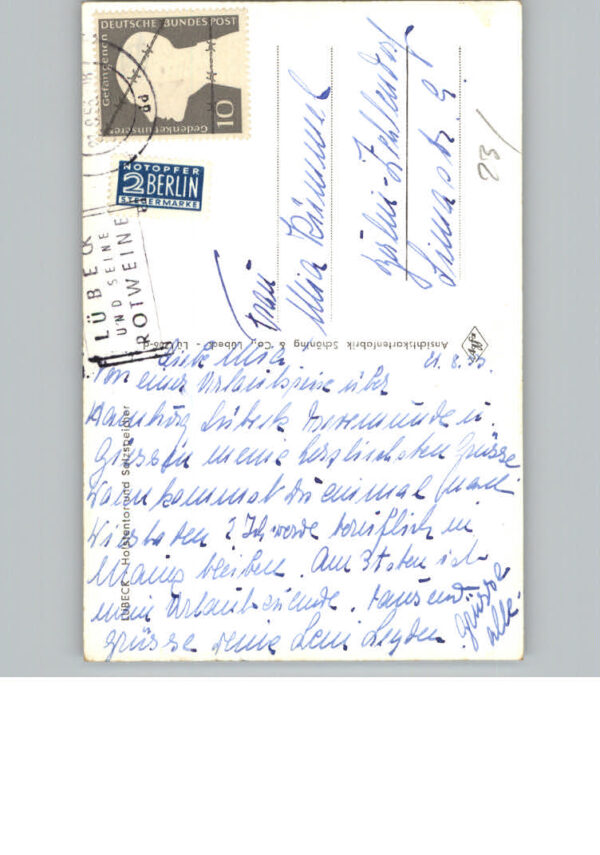 DEUTSCHE BUNDESPOST
Gedenket unserer
Gefangenen
10
NOTOPFER
2 BERLIN
STEUERMARKE
LÜBECK
UND SEINE
ROTWEINE
Frau
Mia Krümmel
Berlin-Zehlendorf
Limastr. 9
23/
Ansichtskartenfabrik Schöning & Co., Lübeck - Lü
Agfa
LÜBECK - Holstentor und Salzspeicher
21. 8. 53.
Liebe Mia
Von einer Urlaubsreise über
Hamburg Lübeck Travemünde u.
meine herzlichsten Grüsse
Wann kommst Du einmal nach
Wiesbaden? Ich werde beruflich in
Mainz bleiben. Am 31ten ist
mein Urlaub zuende. Tausend
Grüsse Deine Leni Leyden
Grüsse
alle.